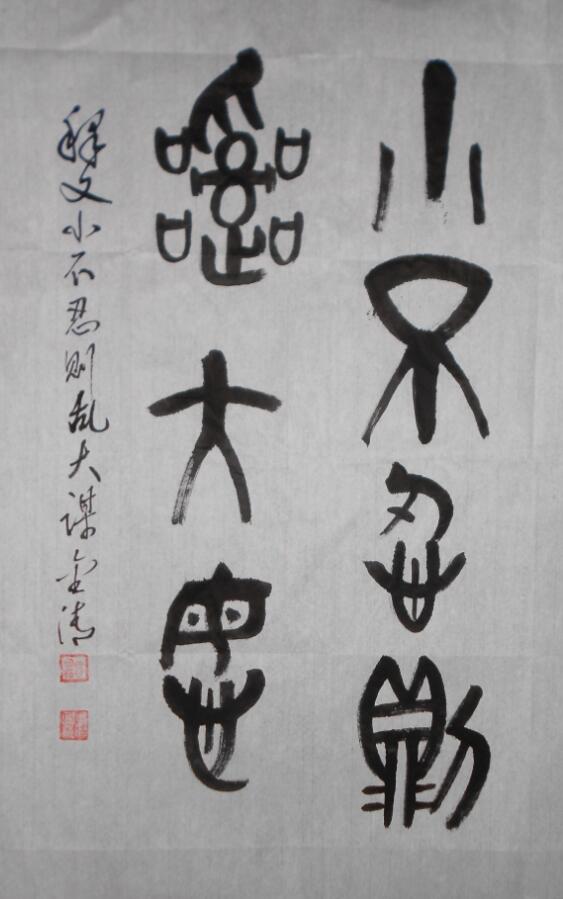 小不忍则
乱大谋
释文小不忍则乱大谋金涛